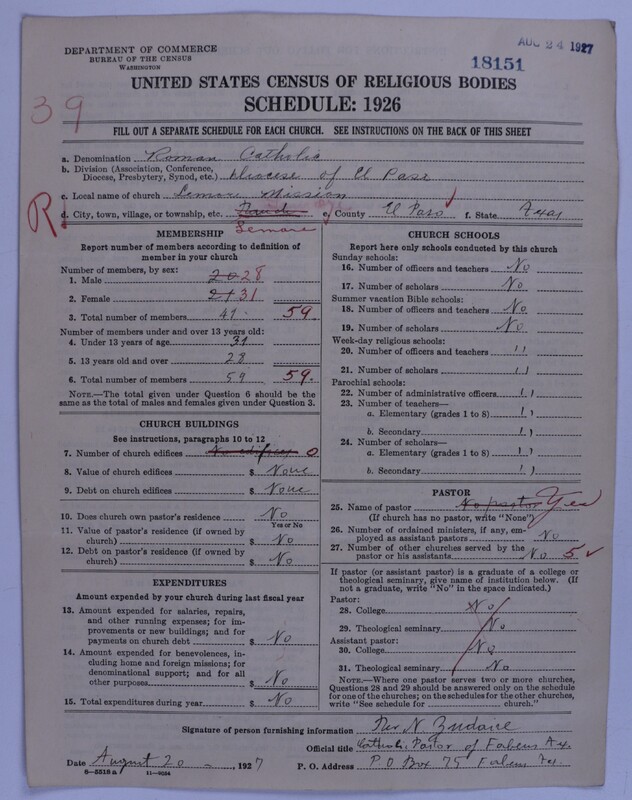 DEPARTMENT OF COMMERCE
BUREAU OF THE CENSUS
WASHINGTON
AUG 24 1927
18151
UNITED STATES CENSUS OF RELIGIOUS BODIES
SCHEDULE: 1926
39
FILL OUT A SEPARATE SCHEDULE FOR EACH CHURCH. SEE INSTRUCTIONS ON THE BACK OF THIS SHEET
a. Denomination Roman Catholic
b. Division (Association, Conference, Diocese, Presbytery, Synod, etc.) Diocese of El Paso
c. Local name of church Mission
R
d. City, town, village, or township, etc. e. County El Paso f. State Texas
MEMBERSHIP
Report number of members according to definition of member in your church
Number of members, by sex:
1. Male 20 28
2. Female 21 31
3. Total number of members 41 59
Number of members under and over 13 years old:
4. Under 13 years of age 31
5. 13 years old and over 28
6. Total number of members 59 59.
NOTE.—The total given under Question 6 should be the same as the total of males and females given under Question 3.
CHURCH BUILDINGS
See instructions, paragraphs 10 to 12
7. Number of church edifices No edifices 0
8. Value of church edifices $ None
9. Debt on church edifices $ None
10. Does church own pastor's residence No
Yes or No
11. Value of pastor's residence (if owned by church) $ No
12. Debt on pastor's residence (if owned by church) $ No
EXPENDITURES
Amount expended by your church during last fiscal year
13. Amount expended for salaries, repairs, and other running expenses; for improvements or new buildings; and for payments on church debt $ No
14. Amount expended for benevolences, including home and foreign missions; for denominational support; and for all other purposes $ No
15. Total expenditures during year $ No
CHURCH SCHOOLS
Report here only schools conducted by this church
Sunday schools:
16. Number of officers and teachers No
17. Number of scholars No
Summer vacation Bible schools:
18. Number of officers and teachers No
19. Number of scholars No
Week-day religious schools:
20. Number of officers and teachers
21. Number of scholars
Parochial schools:
22. Number of administrative officers
23. Number of teachers—
a. Elementary (grades 1 to 8)
b. Secondary
24. Number of scholars—
a. Elementary (grades 1 to 8)
b. Secondary
PASTOR
25. Name of pastor No pastor Yes
(If church has no pastor, write "None")
26. Number of ordained ministers, if any, employed as assistant pastors No
27. Number of other churches served by the pastor or his assistants No 5
If pastor (or assistant pastor) is a graduate of a college or theological seminary, give name of institution below. (If not a graduate, write "No" in the space indicated.)
Pastor:
28. College No
29. Theological seminary No
Assistant pastor:
30. College No
31. Theological seminary No
NOTE.—Where one pastor serves two or more churches, Questions 28 and 29 should be answered only on the schedule for one of the churches; on the schedules for the other churches, write "See schedule for church."
Signature of person furnishing information
Official title Catholic Pastor of Tex.
Date August 20 , 1927 P. O. Address P O Box 75 Tex.
6—5518 a 11—9034